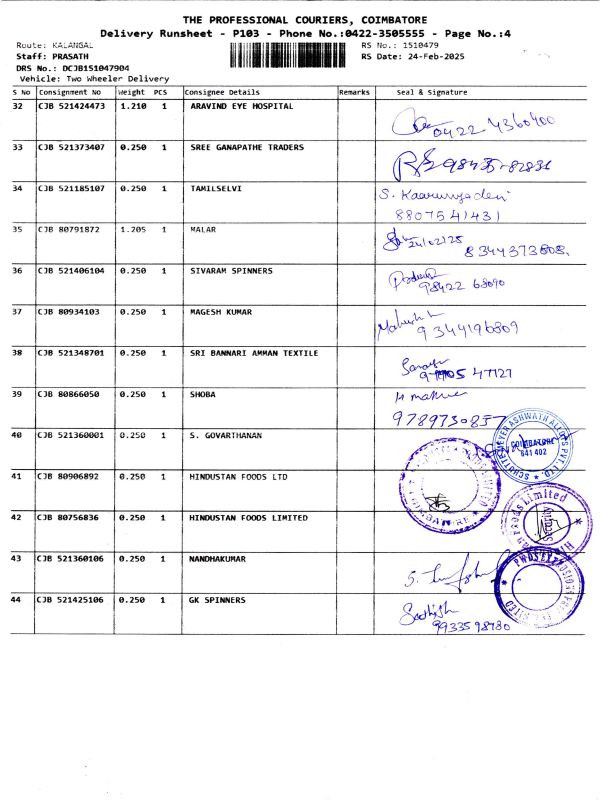 THE PROFESSIONAL COURIERS, COIMBATORE
Delivery Runsheet - P103 - Phone No.:0422-3505555 - Page No.:4
Route: KALANGAL RS No.: 1510479
Staff: PRASATH RS Date: 24-Feb-2025
DRS No.: DCJB151047904
Vehicle: Two Wheeler Delivery
S No Consignment No Weight PCS Consignee Details Remarks Seal & Signature
32 CJB 521424473 1.210 1 ARAVIND EYE HOSPITAL
0422 4360400
33 CJB 521373407 0.250 1 SREE GANAPATHE TRADERS
98435-82831
34 CJB 521185107 0.250 1 TAMILSELVI S. Kaarunyadevi
8807541431
35 CJB 80791872 1.205 1 MALAR
24/02/25
8344373608.
36 CJB 521406104 0.250 1 SIVARAM SPINNERS
98422 68090
37 CJB 80934103 0.250 1 MAGESH KUMAR
9344196809
38 CJB 521348701 0.250 1 SRI BANNARI AMMAN TEXTILE
47127
39 CJB 80866050 0.250 1 SHOBA
9789730857
40 CJB 521360001 0.250 1 S. GOVARTHANAN
SCHOTTEL MEYER ASHWATH ALLOYS PVT. LTD.
COIMBATORE
641 402
41 CJB 80906892 0.250 1 HINDUSTAN FOODS LTD
COIMBATORE
42 CJB 80756836 0.250 1 HINDUSTAN FOODS LIMITED
Foods Limited
Security
43 CJB 521360106 0.250 1 NANDHAKUMAR
44 CJB 521425106 0.250 1 GK SPINNERS
Sathish
9933598780